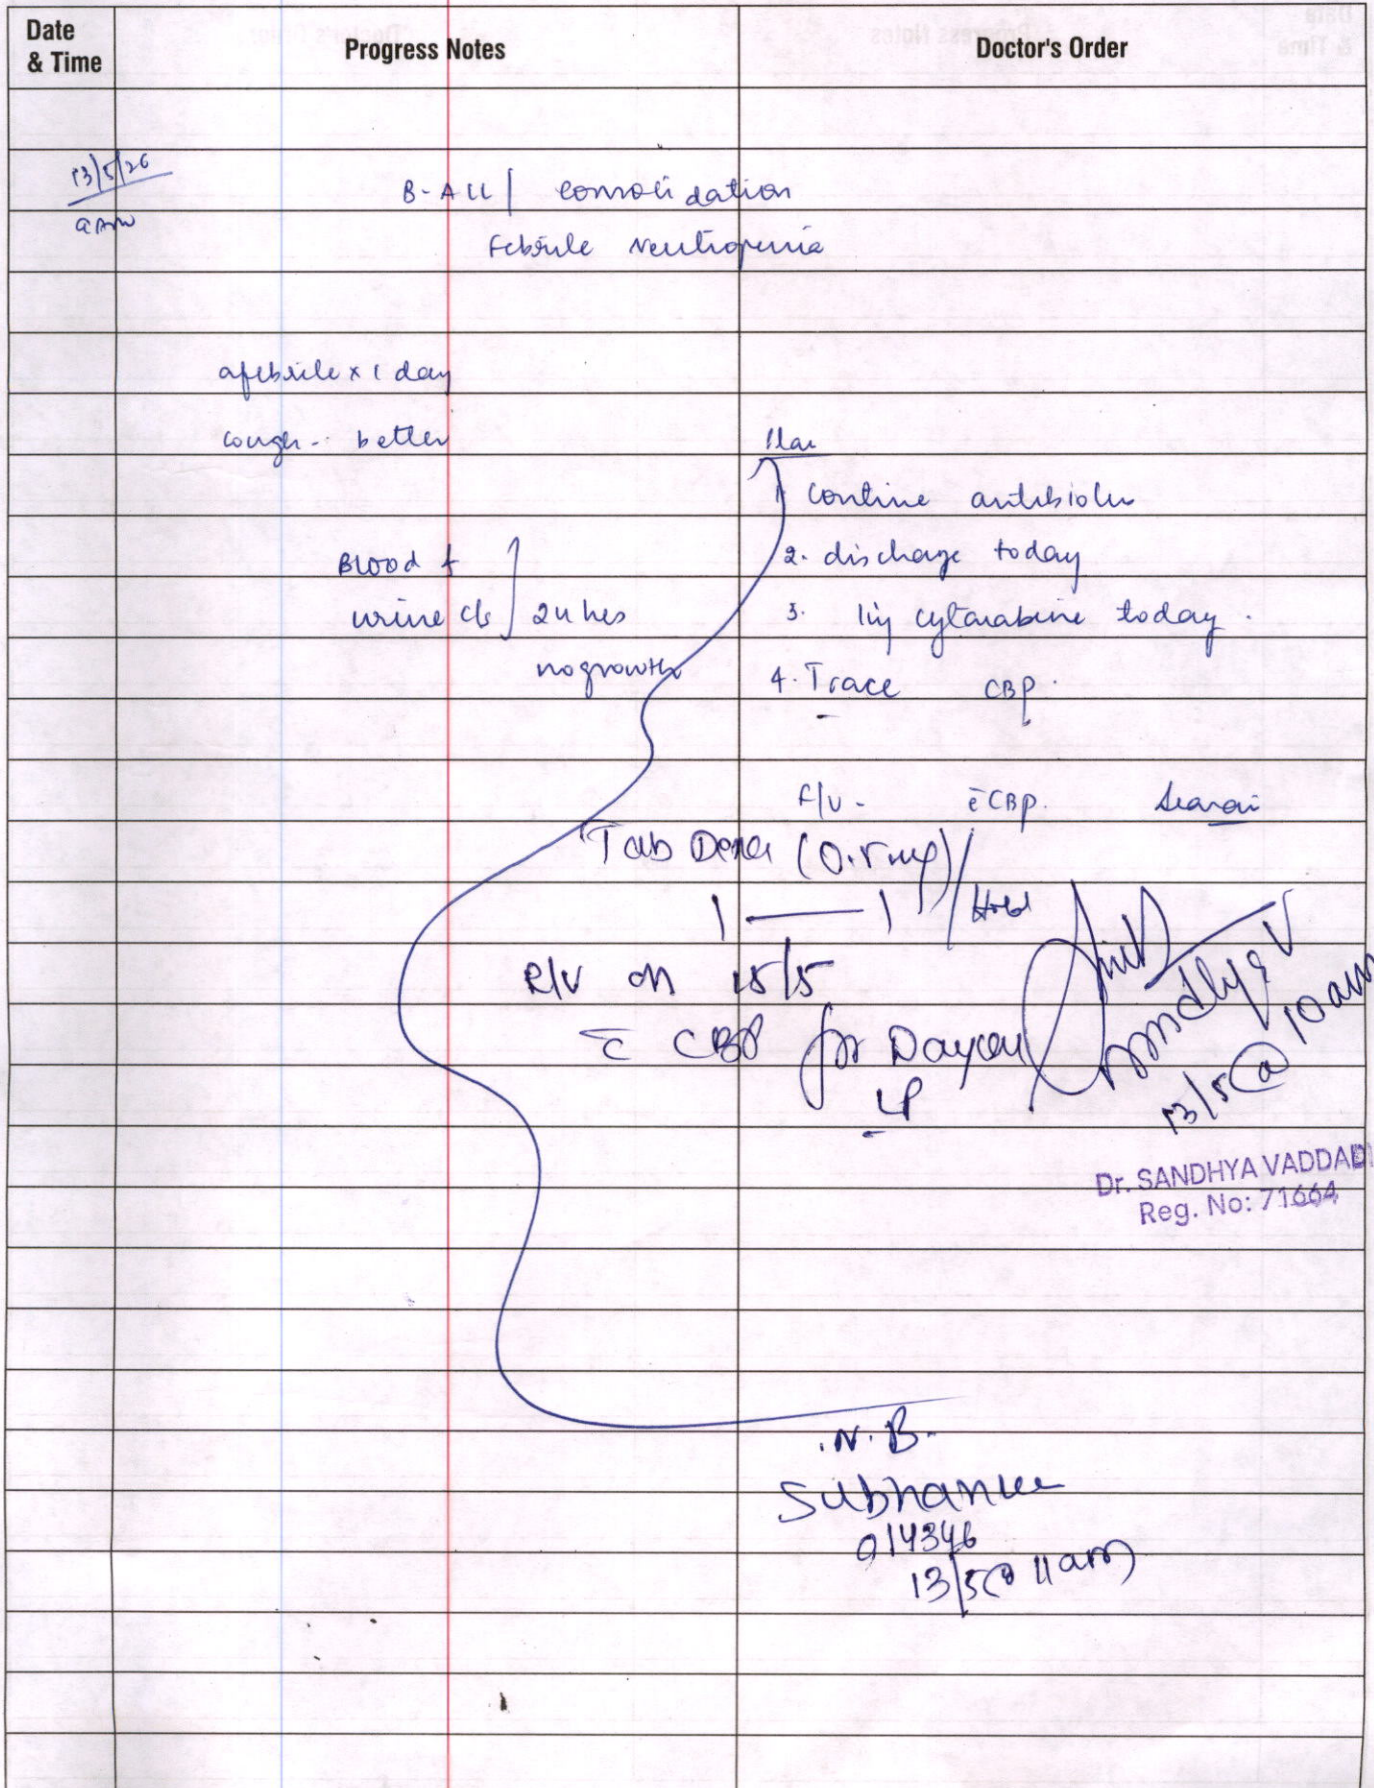 Date
& Time
Progress Notes
Doctor's Order
13/5/26
9 AM
B-ALL | consolidation
Febrile Neutropenia
afebrile x 1 day
cough - better
Plan
1 Contine antibiotics
Blood +
2. discharge today
urine c/s 24 hrs
3. Inj cytarabine today.
no growth
4. Trace CBP.
F/U - c̄ CBP.
Tab Dexa (0.5mg)
1 — 1 / Hold
R/V on 15/5
c̄ CBP for Daycare
LP
Sandhya V
13/5 @ 10 am
Dr. SANDHYA VADDADI
Reg. No: 71664
N.B.
Subhankee
014346
13/5 @ 11 am